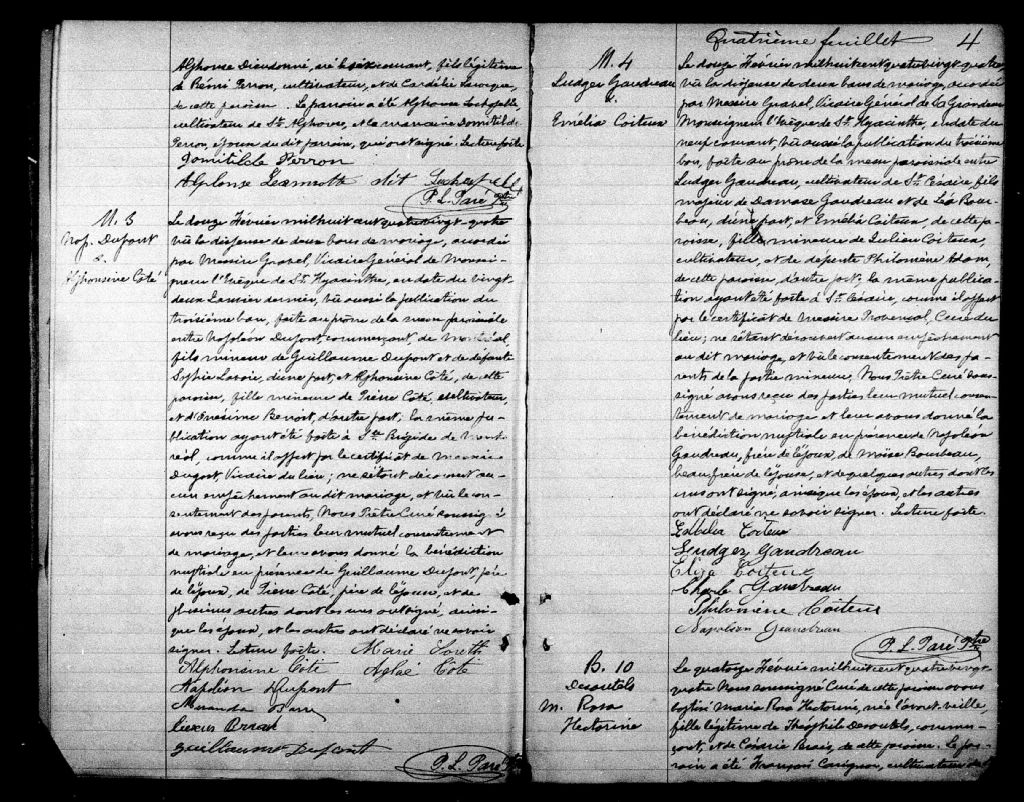 Alphonse Dieudonné, né hier courant, fils légitime
de Rémi Perron, cultivateur, et de Cordélie Larocque,
de cette paroisse. Le parrain a été Alphonse
cultivateur de St. Alphonse, et la marraine Domitilde
Perron, épouse du dit parrain, qui ont signé. Lecture faite
Domitilde Perron
Alphonse dit
P. L. Paré Ptre
M. 3
Nap. Dupont
&
Alphonsine Côté
Le douze Février mil huit cent quatre vingt-quatre
vu la dispense de deux bans de mariage, accordée
par Messire Gravel, Vicaire Général de Monsei-
gneur l'Evêque de St. Hyacinthe, en date du vingt-
deux Janvier dernier, vu aussi la publication du
troisième ban, faite au prône de la messe paroissiale
entre Napoléon Dupont, commerçant, de Montréal,
fils mineur de Guillaume Dupont et de défunte
Sophie Lavoie, d'une part, et Alphonsine Côté, de cette
paroisse, fille mineure de Pierre Côté, cultivateur,
et d'Onésime Benoit, d'autre part; la même pu-
blication ayant été faite à Ste. Brigide de Mont-
réal, comme il appert par le certificat de Messire
Dugast, Vicaire du lieu; ne s'étant découvert au-
cun empêchement au dit mariage, et vu le con-
sentement des parents, Nous Prêtre Curé soussigné
avons reçu des parties leur mutuel consentement
de mariage, et leur avons donné la bénédiction
nuptiale en présence de Guillaume Dupont, père
de l'époux, de Pierre Côté, père de l'épouse, et de
plusieurs autres dont les uns ont signé, ainsi
que les époux, et les autres ont déclaré ne savoir
signer. Lecture faite. Marie
Alphonsine Côté Aglaé Côté
Napoléon Dupont
Guillaume Dupont
P. L. Paré Ptre
Quatrième feuillet 4
M. 4
Ludger Gaudreau
&
Emélia Coiteux
Le douze Février mil huit cent quatre vingt-quatre
vu la dispense de deux bans de mariage, accordée
par Messire Gravel, Vicaire Général de Sa Grandeur
Monseigneur l'Evêque de St. Hyacinthe, en date du
neuf courant, vu aussi la publication du troisième
ban, faite au prône de la messe paroissiale entre
Ludger Gaudreau, cultivateur de St. Césaire, fils
majeur de Damase Gaudreau et de Léa Bour-
beau, d'une part, et Emélia Coiteux, de cette pa-
roisse, fille mineure de Julien Coiteux,
cultivateur, et de défunte Philomène Adam,
de cette paroisse, d'autre part; la même publica-
tion ayant été faite à St. Césaire, comme il appert
par le certificat de messire Provençal, Curé du
lieu; ne s'étant découvert aucun empêchement
au dit mariage, et vu le consentement des pa-
rents de la partie mineure, Nous Prêtre Curé sous-
signé avons reçu des parties leur mutuel consen-
tement de mariage et leur avons donné la
bénédiction nuptiale en présence de Napoléon
Gaudreau, frère de l'époux, de Moïse Bourbeau,
beau-frère de l'époux, et de quelques autres dont les
uns ont signé, ainsi que les époux, et les autres
ont déclaré ne savoir signer. Lecture faite.
Emélia Coiteux
Ludger Gaudreau
Eliza Coiteux
Charle Gaudreau
Philomène Coiteux
Napoléon Gaudreau
P. L. Paré Ptre
B. 10
Desautels
M. Rosa
Hectorine
Le quatorze Février mil huit cent quatre vingt-
quatre Nous soussigné Curé de cette paroisse avons
baptisé Maria Rosa Hectorine, née l'avant-veille,
fille légitime de Théophile Desautels, commer-
çant, et de Césarie Brais, de cette paroisse. Le par-
rain a été François Carignan, cultivateur de